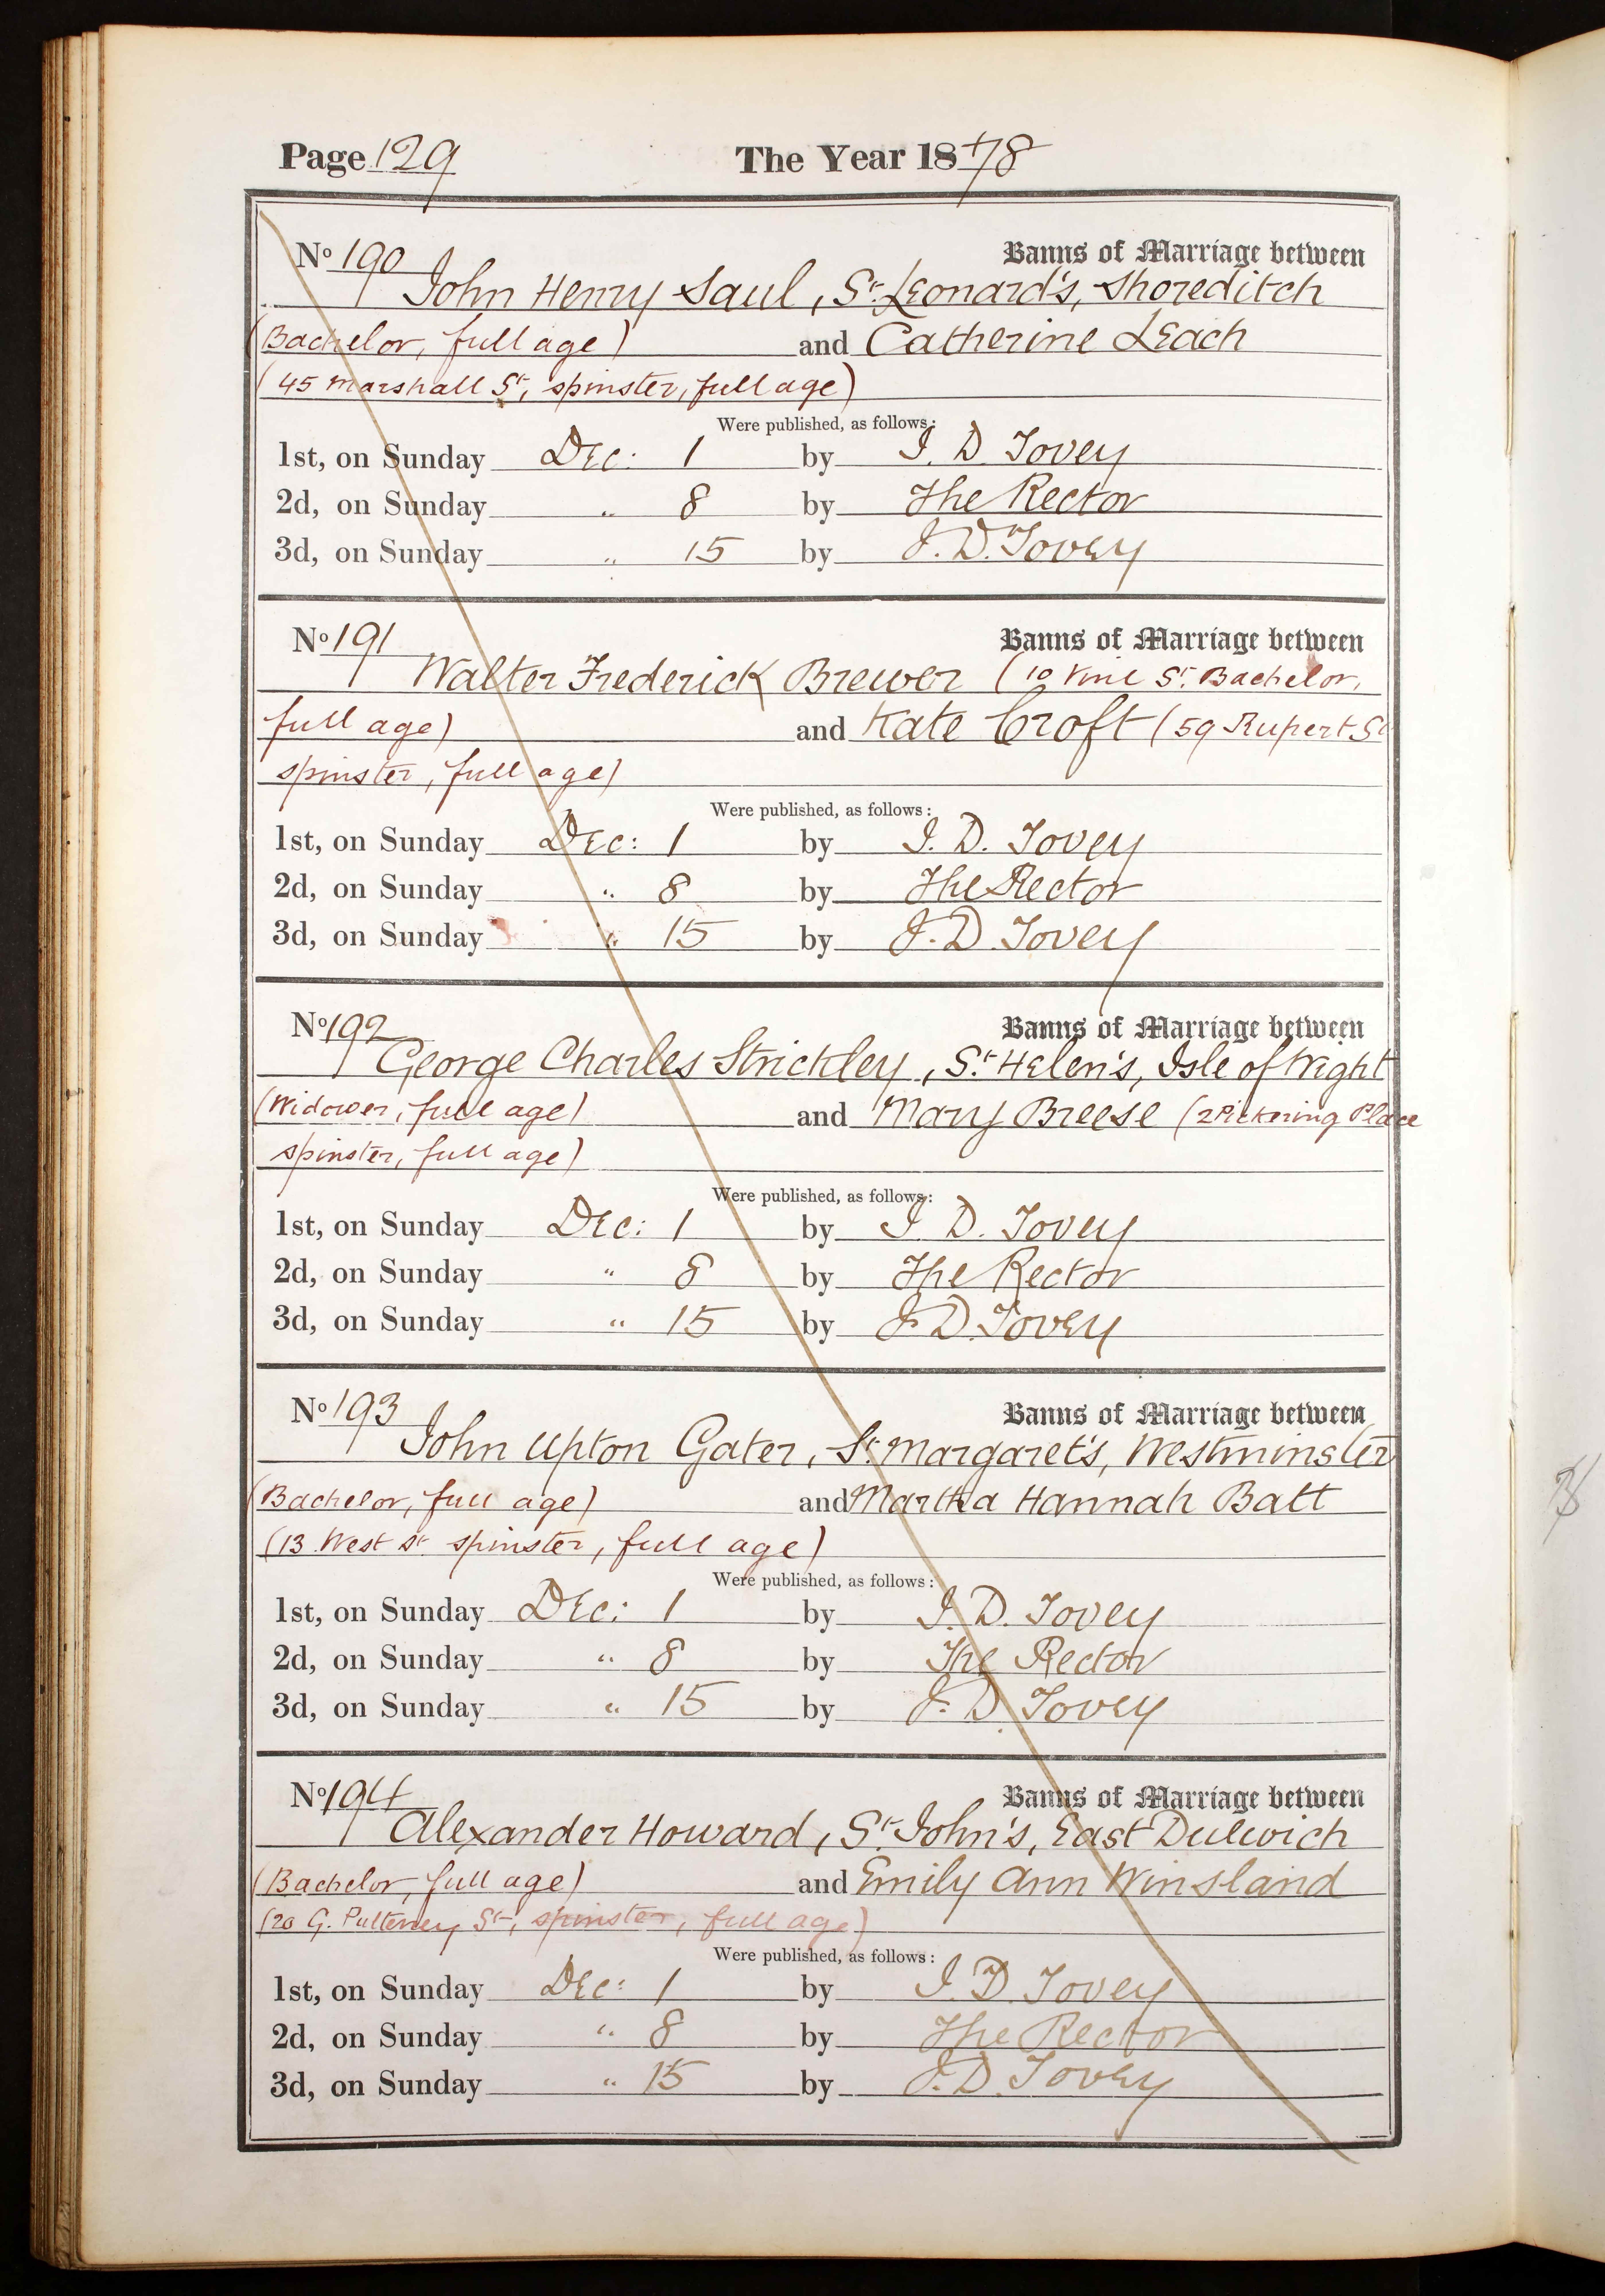 Page 129 The Year 1878
No 190 Banns of Marriage between
John Henry Saul, St. Leonard's, Shoreditch
(Bachelor, full age) and Catherine Leach
(45 Marshall St, spinster, full age)
Were published, as follows:
1st, on Sunday Dec: 1 by J. D. Tovey
2d, on Sunday " 8 by The Rector
3d, on Sunday " 15 by J. D. Tovey
No 191 Banns of Marriage between
Walter Frederick Brewer (10 Vine St. Bachelor,
full age) and Kate Croft (59 Rupert St
spinster, full age)
Were published, as follows:
1st, on Sunday Dec: 1 by J. D. Tovey
2d, on Sunday " 8 by The Rector
3d, on Sunday " 15 by J. D. Tovey
No 192 Banns of Marriage between
George Charles Strickley, St. Helen's, Isle of Wight
(Widower, full age) and Mary Breese (2 Pickering Place
spinster, full age)
Were published, as follows:
1st, on Sunday Dec: 1 by J. D. Tovey
2d, on Sunday " 8 by The Rector
3d, on Sunday " 15 by J. D. Tovey
No 193 Banns of Marriage between
John Upton Gater, St. Margaret's, Westminster
(Bachelor, full age) and Martha Hannah Batt
(13 West St. spinster, full age)
Were published, as follows:
1st, on Sunday Dec: 1 by J. D. Tovey
2d, on Sunday " 8 by The Rector
3d, on Sunday " 15 by J. D. Tovey
No 194 Banns of Marriage between
Alexander Howard, St. John's, East Dulwich
(Bachelor, full age) and Emily Ann Winsland
(20 G. Pulteney St, spinster, full age)
Were published, as follows:
1st, on Sunday Dec: 1 by J. D. Tovey
2d, on Sunday " 8 by The Rector
3d, on Sunday " 15 by J. D. Tovey